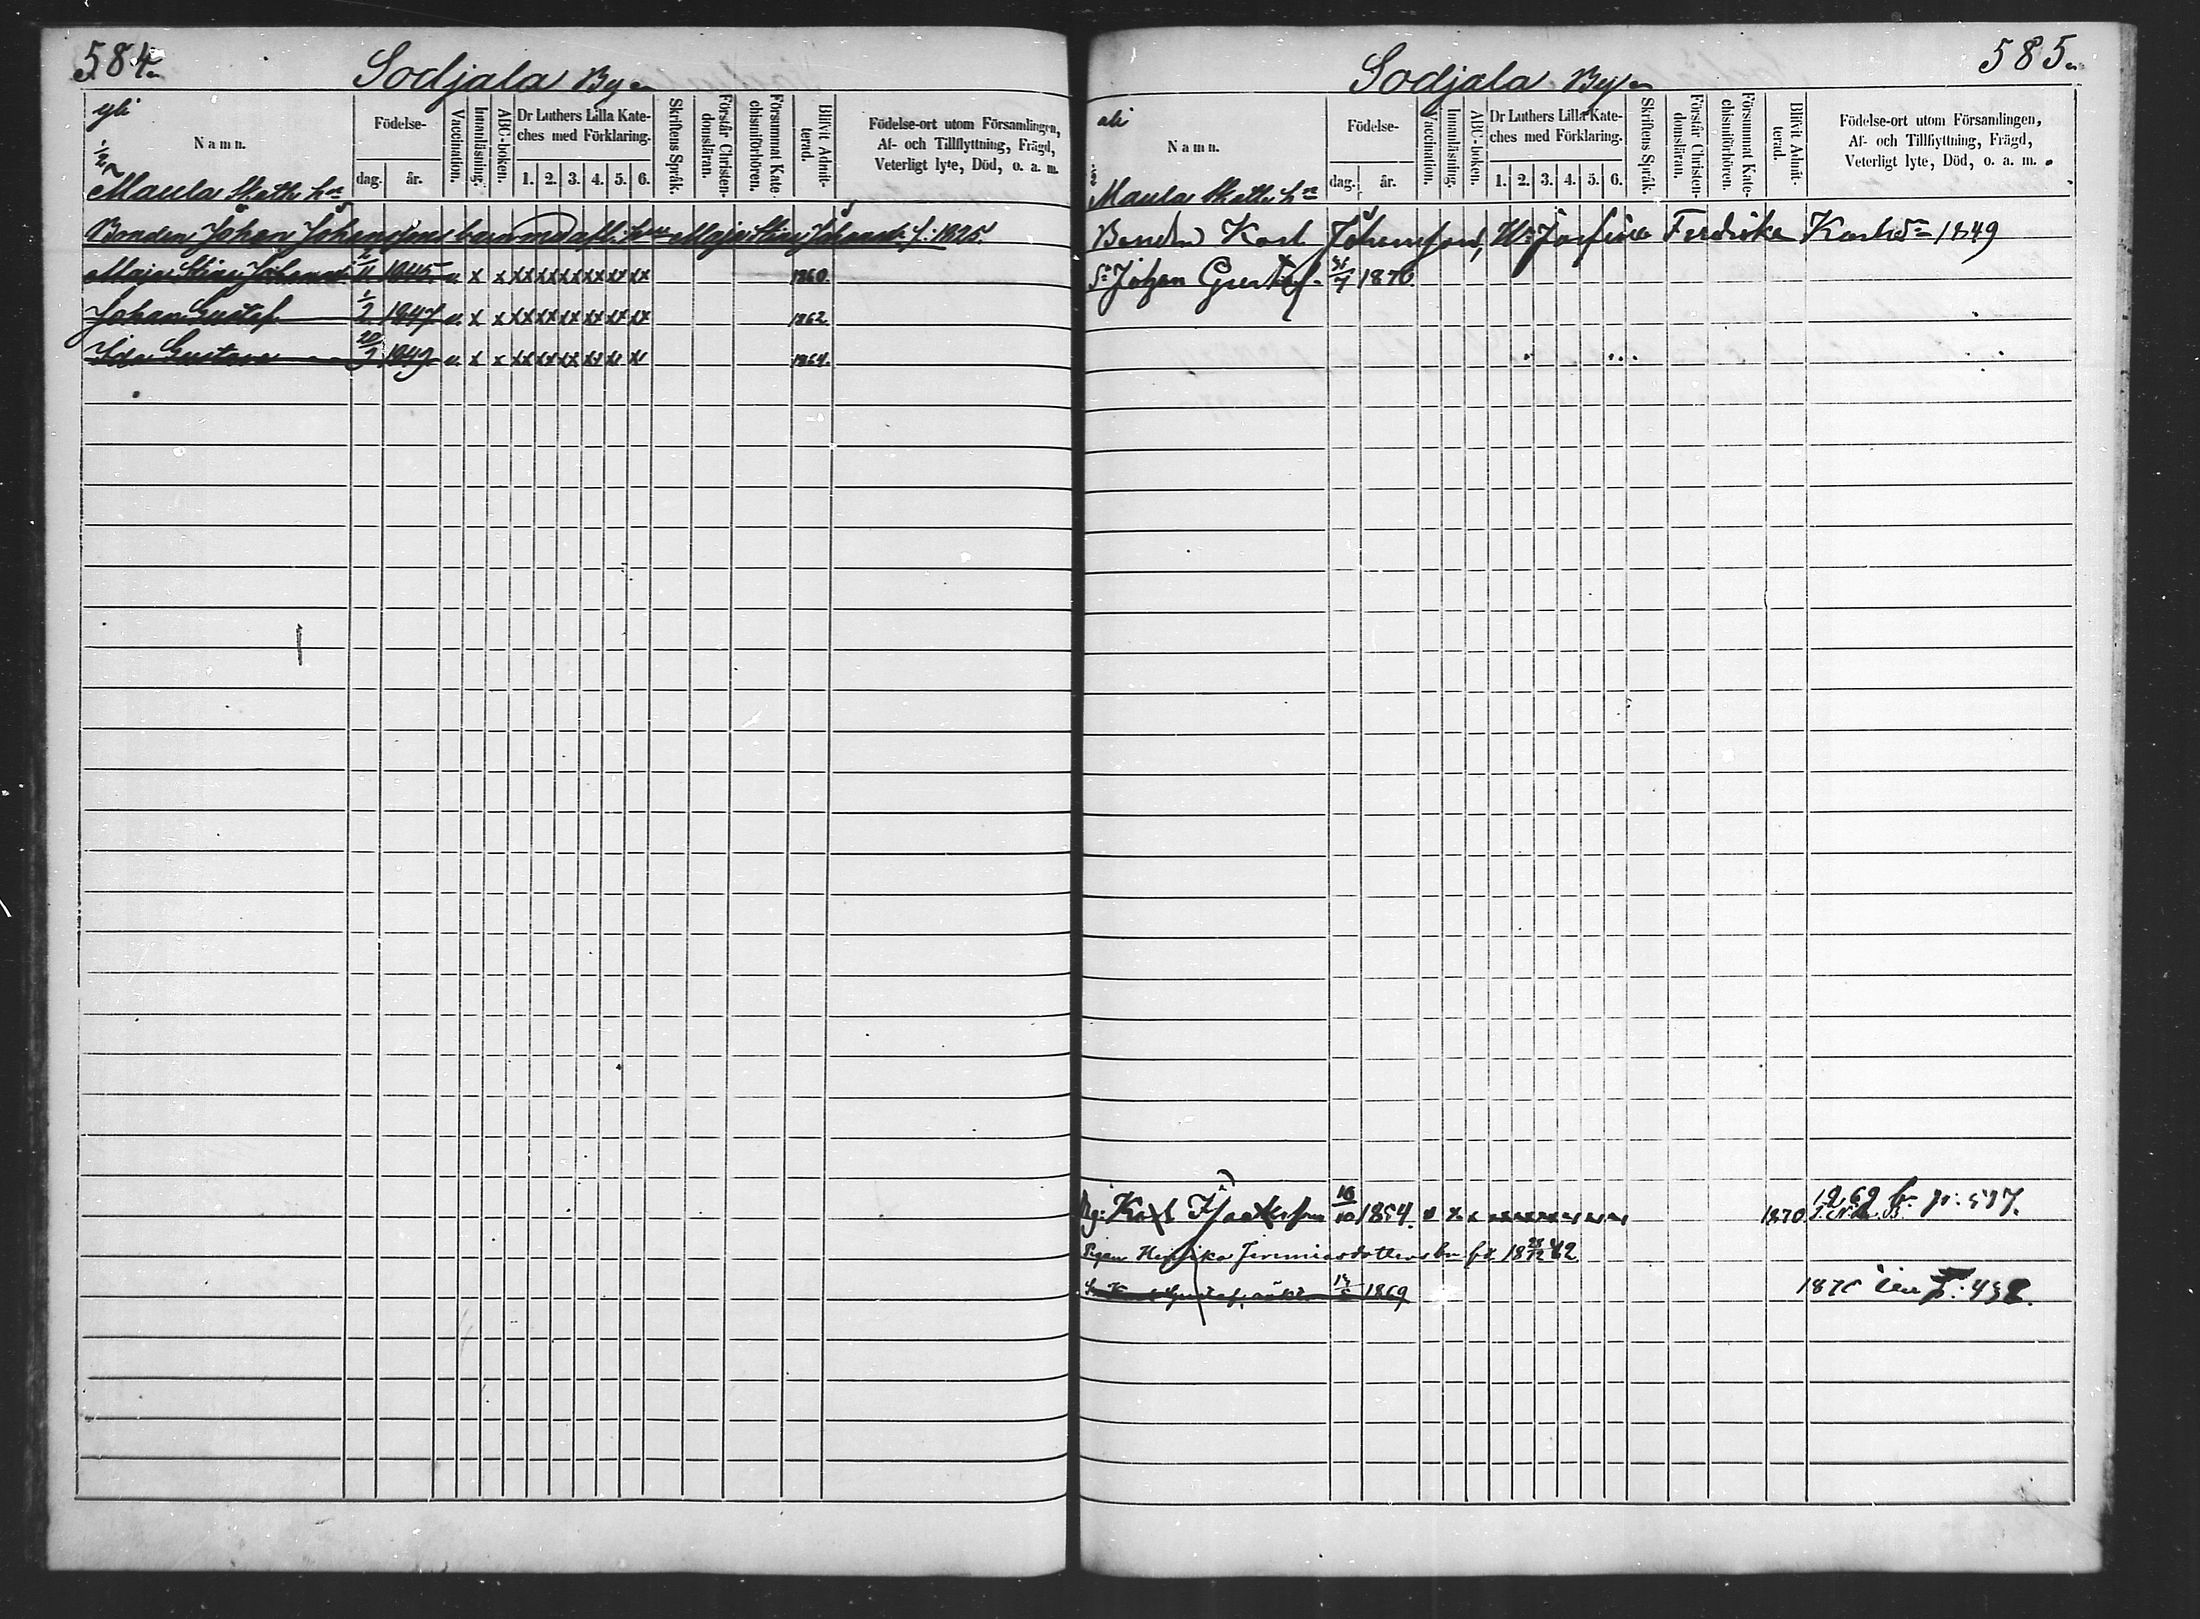 584.
Sodjala By
yli
Namn. Födelse- dag. år. Vaccination. Innanläsning. ABC-boken. Dr Luthers Lilla Kateches med Förklaring. 1. 2. 3. 4. 5. 6. Skriftens Språk. Förstår Christendomsläran. Försummat Katechismiförhören. Blifvit Admitterad. Födelse-ort utom Församlingen, Af- och Tillflyttning, Frägd, Veterligt lyte, Död, o. a. m.
1/2
Maula Skatte hn
Bonden Johan Johanssons barn med afl. h: Maja Stina Johansd: f. 1825.
Maja Stina Johansd: 1845 v x x xx xx xx xx xx xx 1860.
Johan Gustaf 1/2 1847 v. x x xx xx xx xx xx xx 1862.
Ida Gustava 1849 v x x xx xx xx xx x x 1864.
585.
Sodjala By
ali
Namn. Födelse- dag. år. Vaccination. Innanläsning. ABC-boken. Dr Luthers Lilla Kateches med Förklaring. 1. 2. 3. 4. 5. 6. Skriftens Språk. Förstår Christendomsläran. Försummat Katechismiförhören. Blifvit Admitterad. Födelse-ort utom Församlingen, Af- och Tillflyttning, Frägd, Veterligt lyte, Död, o. a. m.
1/2
Maula Skatte hn
Bonden Karl Johansson, H: Josefina Fredrika Karlsd: 1849
S: Johan Gustaf. 1870
Karl Isaksson 16/10 1854. v x x 1870 1869 fr. p: 597.
Pigan Henrika Jeremiasdotters bn fd 18 25/12 42
S: Karl Gustaf, oäkta 1869 p. 438.